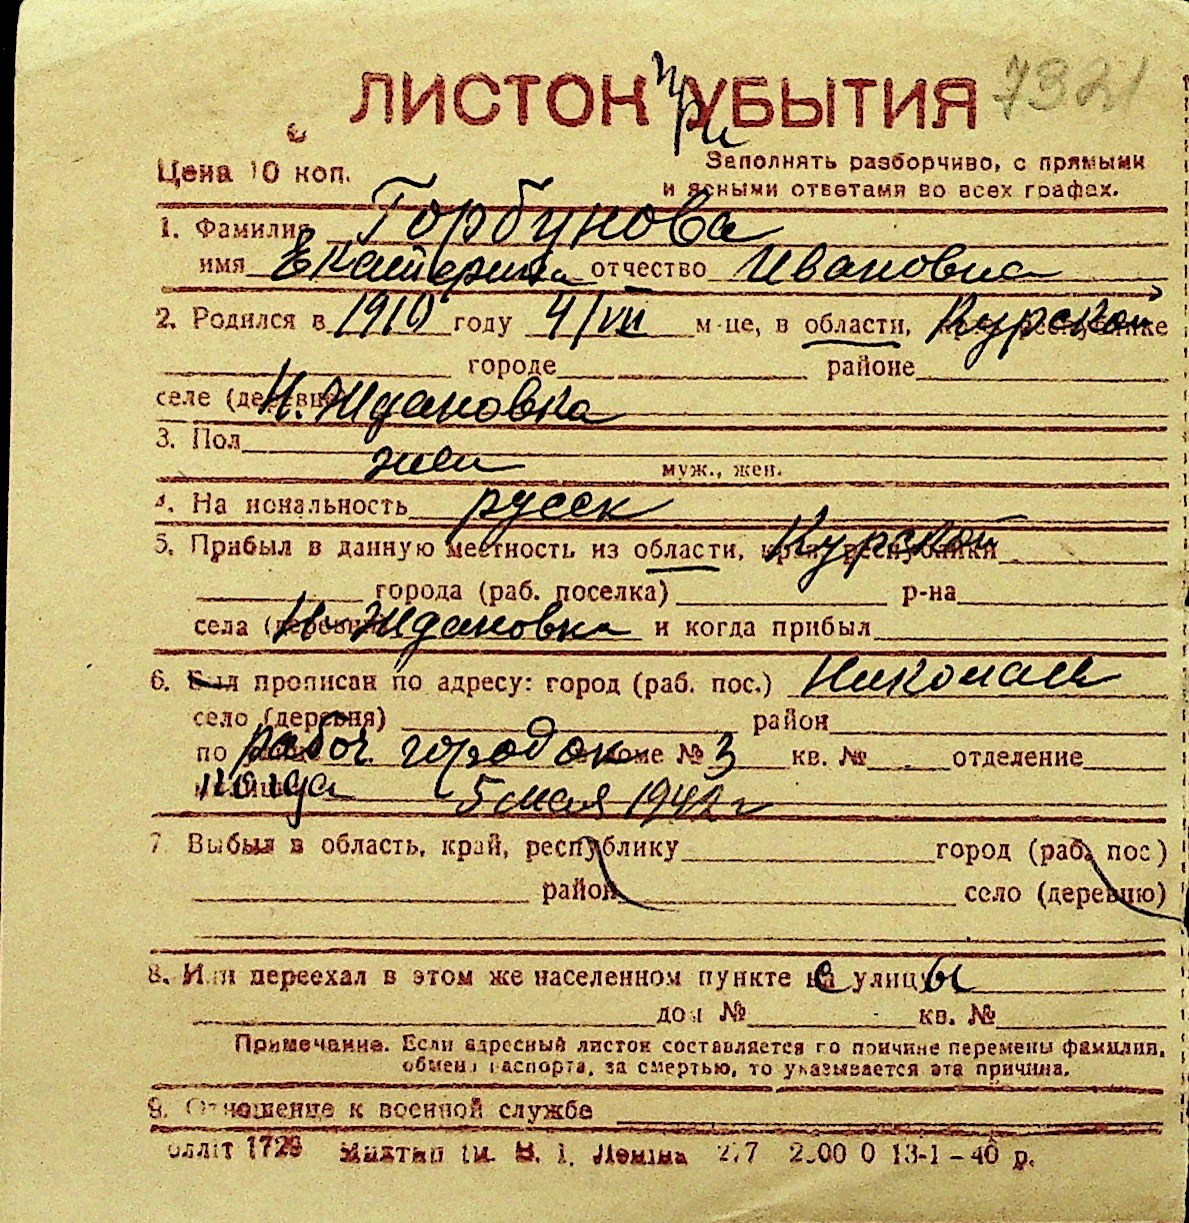 7321
ЛИСТОК при УБЫТИЯ
Цена 10 коп.
Заполнять разборчиво, с прямыми
и ясными ответами во всех графах.
1. Фамилия Горбунова
имя Екатерина отчество Ивановна
2. Родился в 1910 году 4/VII м-це, в области, Курской
городе районе
селе (деревне) Н. Ждановка
3. Пол жен муж., жен.
4. Национальность русск
5. Прибыл в данную местность из области, края, республики Курской
города (раб. поселка) р-на
села (деревни) Н-Ждановка и когда прибыл
6. Был прописан по адресу: город (раб. пос.) Николаев
село (деревня) район
по рабоч. городок доме № 3 кв. № отделение
5 мая 1942 г
7. Выбыл в область, край, республику город (раб. пос)
район село (деревню)
8. Или переехал в этом же населенном пункте с улицы
дом № кв. №
Примечание. Если адресный листок составляется по причине перемены фамилии,
обмена паспорта, за смертью, то указывается эта причина.
9. Отношение к военной службе
1729 Леніна 13-1-40 р.